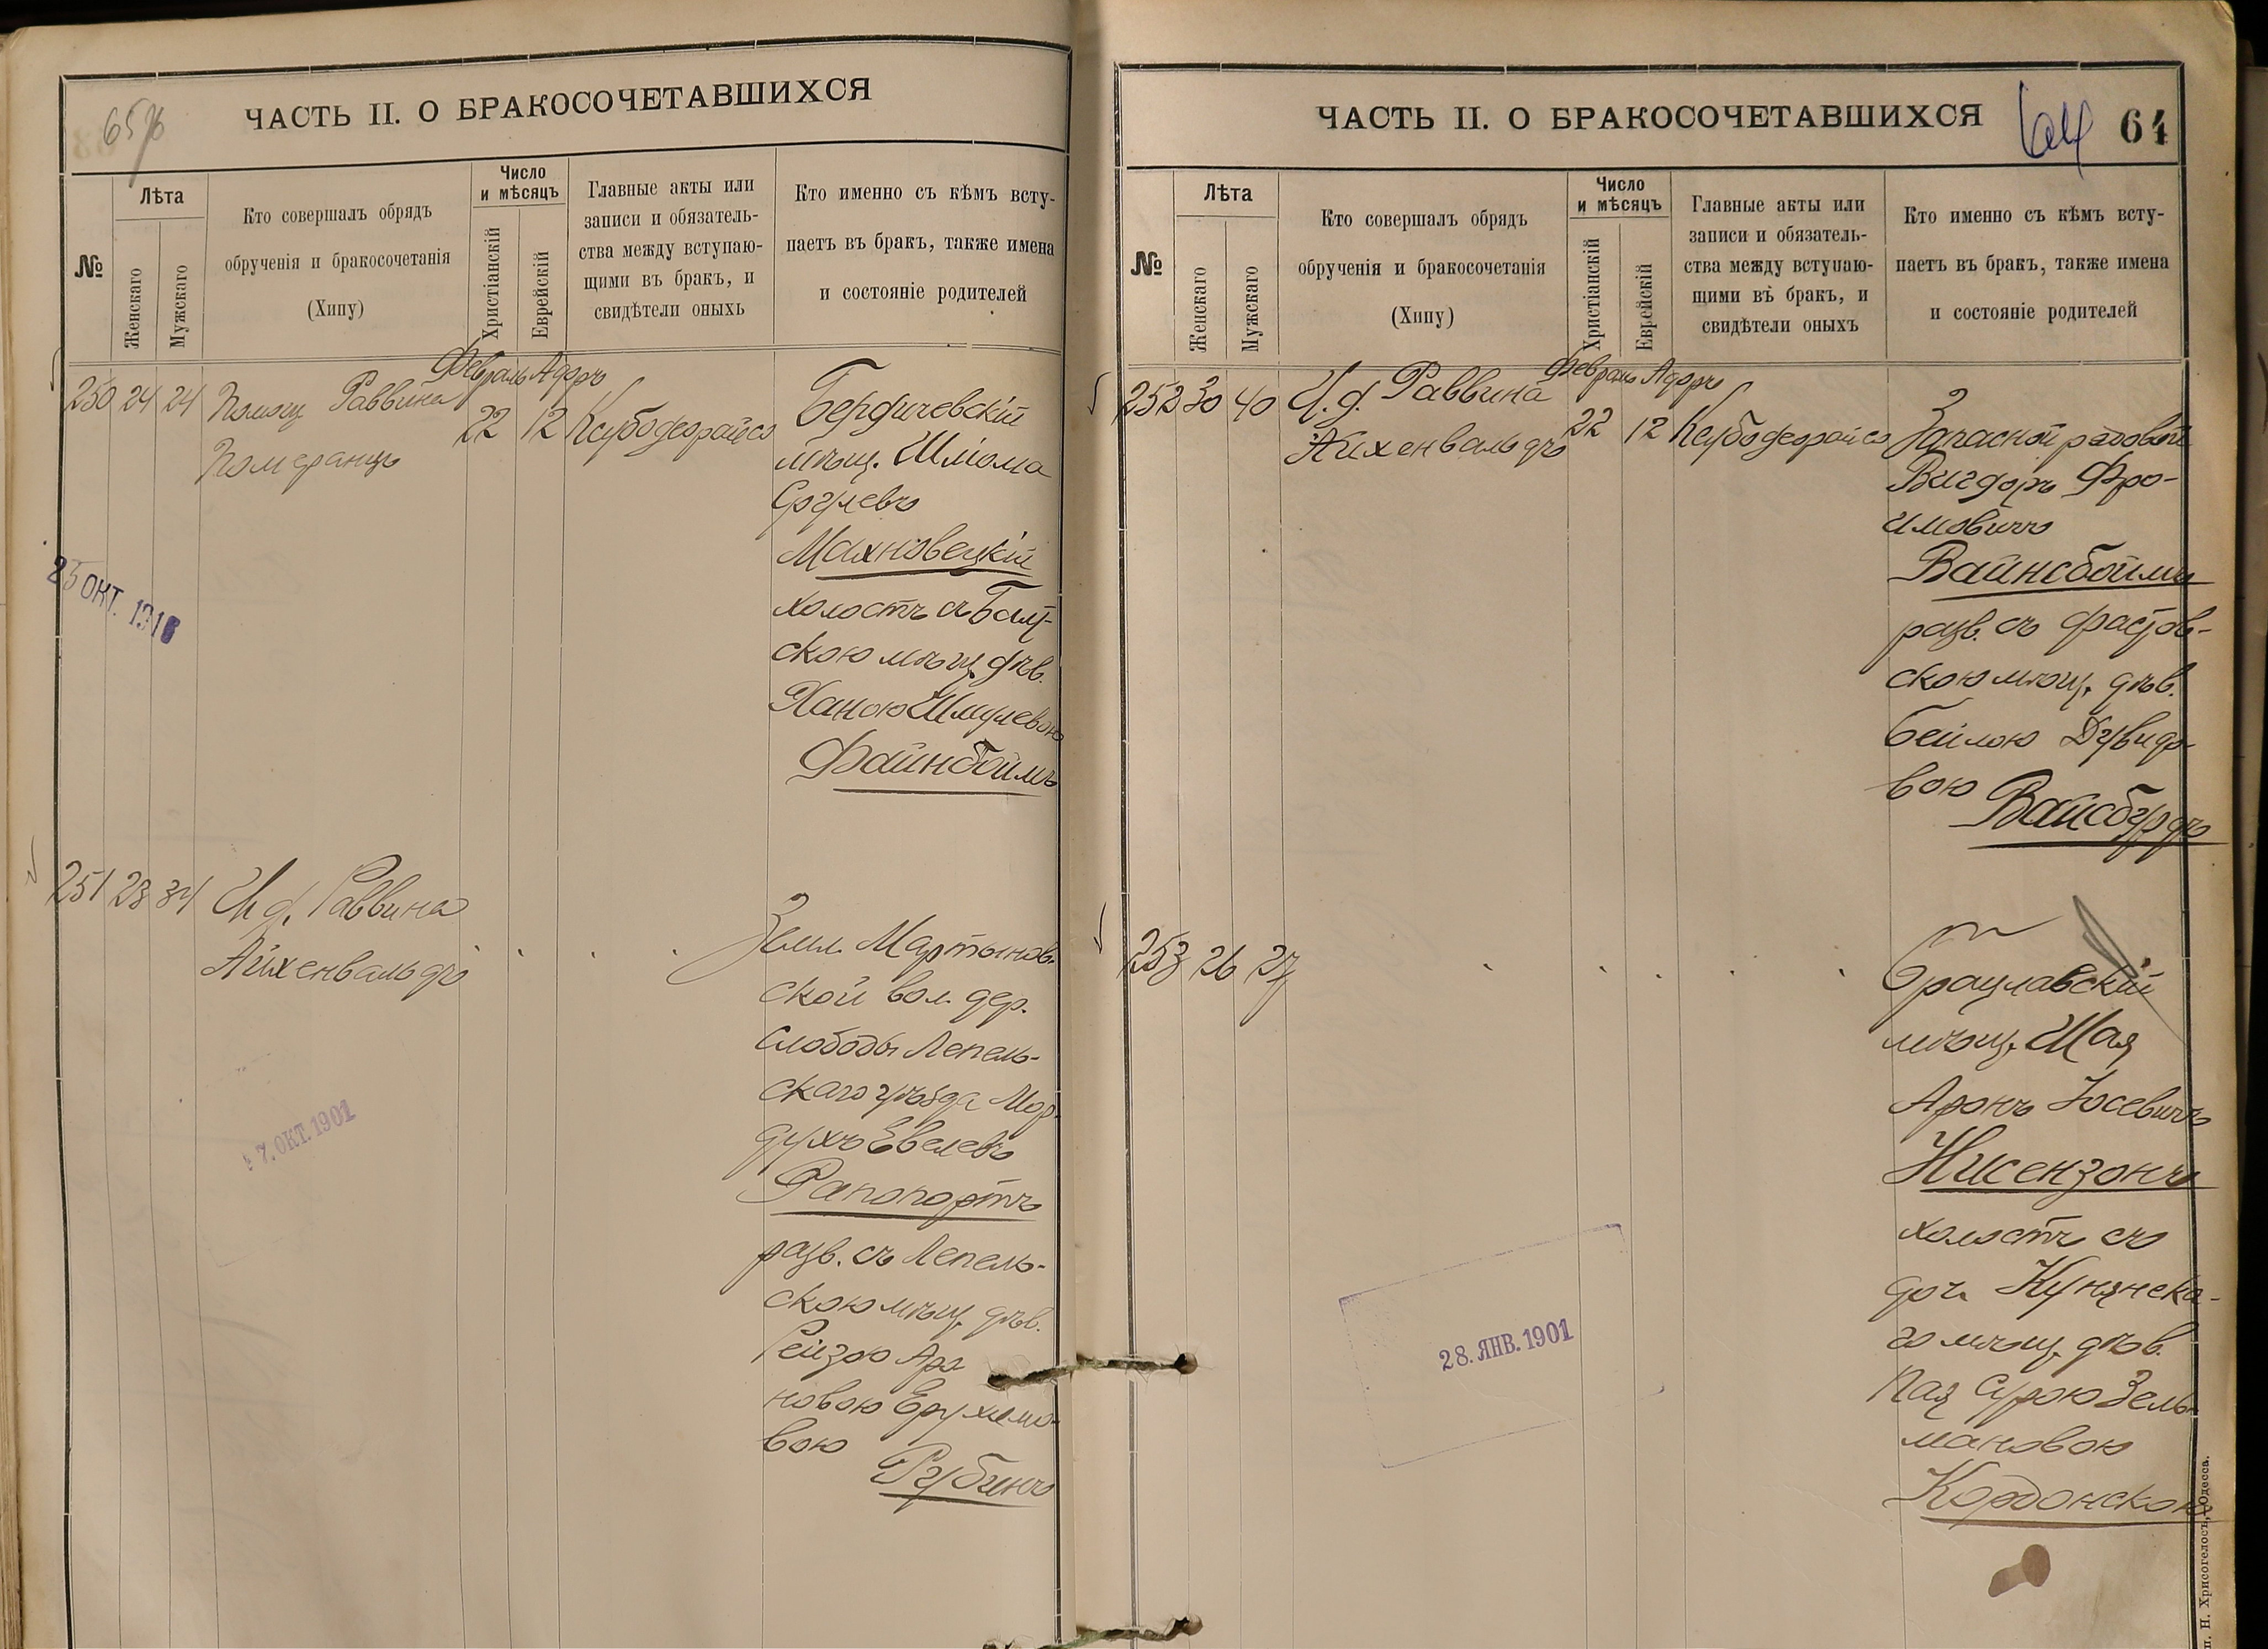 ЧАСТЬ II. О БРАКОСОЧЕТАВШИХСЯ
№
Лѣта
Женскаго
Мужскаго
Кто совершалъ обрядъ
обрученія и бракосочетанія
(Хипу)
Число
и мѣсяцъ
Христіанскій
Еврейскій
Главные акты или
записи и обязатель-
ства между вступаю-
щими въ бракъ, и
свидѣтели оныхъ
Кто именно съ кѣмъ всту-
паетъ въ бракъ, также имена
и состояніе родителей
Февраль Адоръ
250 24 24 Помощ Раввина
Померанцъ
22 12
Бердичевскій
мѣщ. Шліома
Сруліевъ
Махновецкій
холостъ съ Балт-
скою мѣщ. дѣв.
Ханою Шмулевою
Файнбоймъ
25 ОКТ. 1916
251 23 34 И. д. Раввина
Айхенвальдъ
Земл. Мартынов-
ской вол. дер.
Слободы Лепель-
скаго уѣзда Мор-
духъ Евелевъ
Рапопортъ
разв. съ Лепель-
скою мѣщ. дѣв.
Рейзою Аро
новою Ерухимо-
вою
Рубинъ
7. ОКТ. 1901
ЧАСТЬ II. О БРАКОСОЧЕТАВШИХСЯ
64
№
Лѣта
Женскаго
Мужскаго
Кто совершалъ обрядъ
обрученія и бракосочетанія
(Хипу)
Число
и мѣсяцъ
Христіанскій
Еврейскій
Главные акты или
записи и обязатель-
ства между вступаю-
щими въ бракъ, и
свидѣтели оныхъ
Кто именно съ кѣмъ всту-
паетъ въ бракъ, также имена
и состояніе родителей
Февраль Адоръ
252 30 40 И. д. Раввина
Айхенвальдъ
22 12
Запасной рядовой
Вигдоръ Фро-
имовичъ
Вайнсбоймъ
разв. съ Фастов-
скою мѣщ. дѣв.
Бейлою Дувидо-
вою
Вайсбурдъ
253 26 27
Брацлавскій
мѣщ. Шая
Аронъ Іосевичъ
Нисензонъ
холостъ съ
доч. Кунянска-
го мѣщ. дѣв.
Пая Сурою Зель-
мановою
Кордонскою
28. ЯНВ. 1901
п. Н. Хрисогелосъ, Одесса.